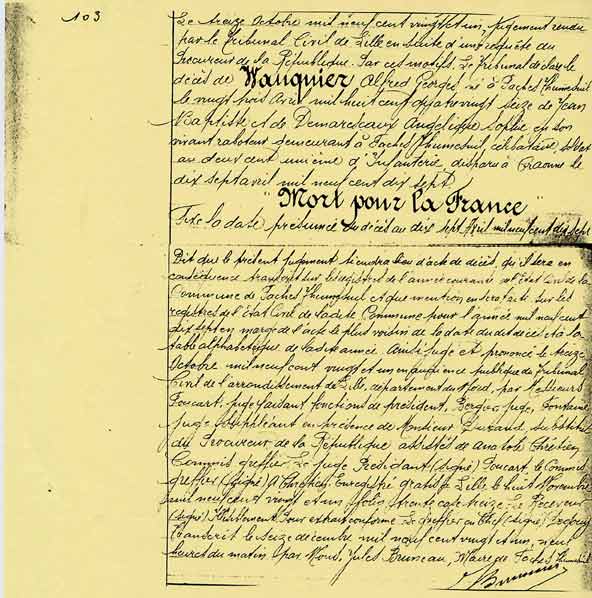 103
Le treize Octobre mil neuf cent vingt et un, Jugement rendu
par le Tribunal Civil de Lille en suite d'une requête du
Procureur de la République. Par ces motifs. Le Tribunal déclare le
décès de Wauquier Alfred Georges né à Faches Thumesnil
le vingt trois Avril mil huit cent quatre vingt seize de Jean
Baptiste et de Demarescaux Angélique Sophie en son
vivant raboteur demeurant à Faches Thumesnil, célibataire, soldat
au deux cent unième d'Infanterie disparu à Craonne le
dix sept avril mil neuf cent dix sept
"Mort pour la France"
Fixe la date présumée du décès au dix sept Avril mil neuf cent dix sept
Dit que le présent jugement tiendra lieu d'acte de décès, qu'il sera en
conséquence transcrit sur les registres de l'année courante de l'état Civil de la
Commune de Faches Thumesnil et que mention en sera faite sur les
registres de l'Etat Civil de ladite Commune pour l'année mil neuf cent
dix sept en marge de l'acte le plus voisin de la date du dit décès et à la
table alphabétique de ladite année. Ainsi jugé et prononcé le treize
Octobre mil neuf cent vingt et un en audience publique du Tribunal
Civil de l'arrondissement de Lille, département du Nord, par Messieurs
Foucart, juge faisant fonctions de président, Juge, Fontaine
juge suppléant en présence de Monsieur Durand substitut
du Procureur de la République assistés de Anatole Chrétien
Commis greffier. Le juge Président (signé) Foucart, le Commis
greffier (signé) A Chrétien. Enregistré gratis à Lille le huit Novembre
mil neuf cent vingt et un folio trente case seize. Le Receveur
(signé) Pour extrait conforme Le greffier en Chef (signé)
Transcrit le seize décembre mil neuf cent vingt et un, neuf
heures du matin, par Nous, Jules Bruneau, Maire de Faches Thumesnil
Bruneau